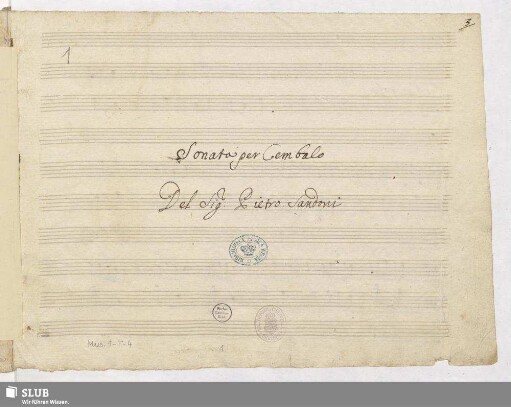 3
1
Sonata per Cembalo
Del Sig. Pietro Sandoni
SLUB
Wir führen Wissen.